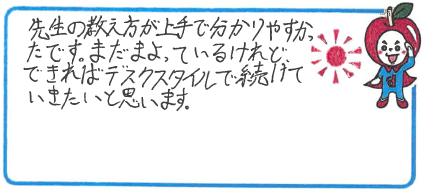 先生の教え方が上手で分かりやすかっ
たです。まだまよっているけれど、
できればデスクスタイルで続けて
いきたいと思います。